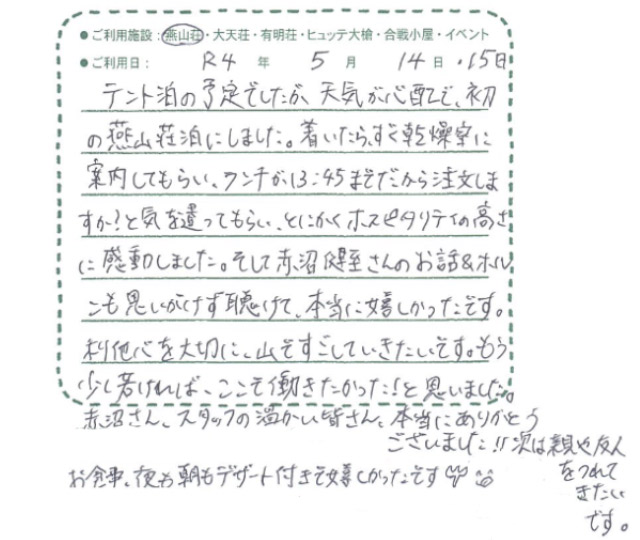 ●ご利用施設：燕山荘・大天荘・有明荘・ヒュッテ大槍・合戦小屋・イベント
●ご利用日： R4 年 5 月 14 日・15日
テント泊の予定でしたが、天気が心配で、初
の燕山荘泊にしました。着いたらすぐ乾燥室に
案内してもらい、ランチが13:45までだから注文しま
すか?と気を遣ってもらい、とにかくホスピタリティの高さ
に感動しました。そして赤沼健至さんのお話&ホル
ンも思いがけず聴けて、本当に嬉しかったです。
利他心を大切に、山ですごしていきたいです。もう
少し若ければ、ここで働きたかった!と思いました。
赤沼さん、スタッフの温かい皆さん、本当にありがとう
ございました!!次は親や友人
をつれて
きたい
です。
お食事、夜も朝もデザート付きで嬉しかったです♡♡